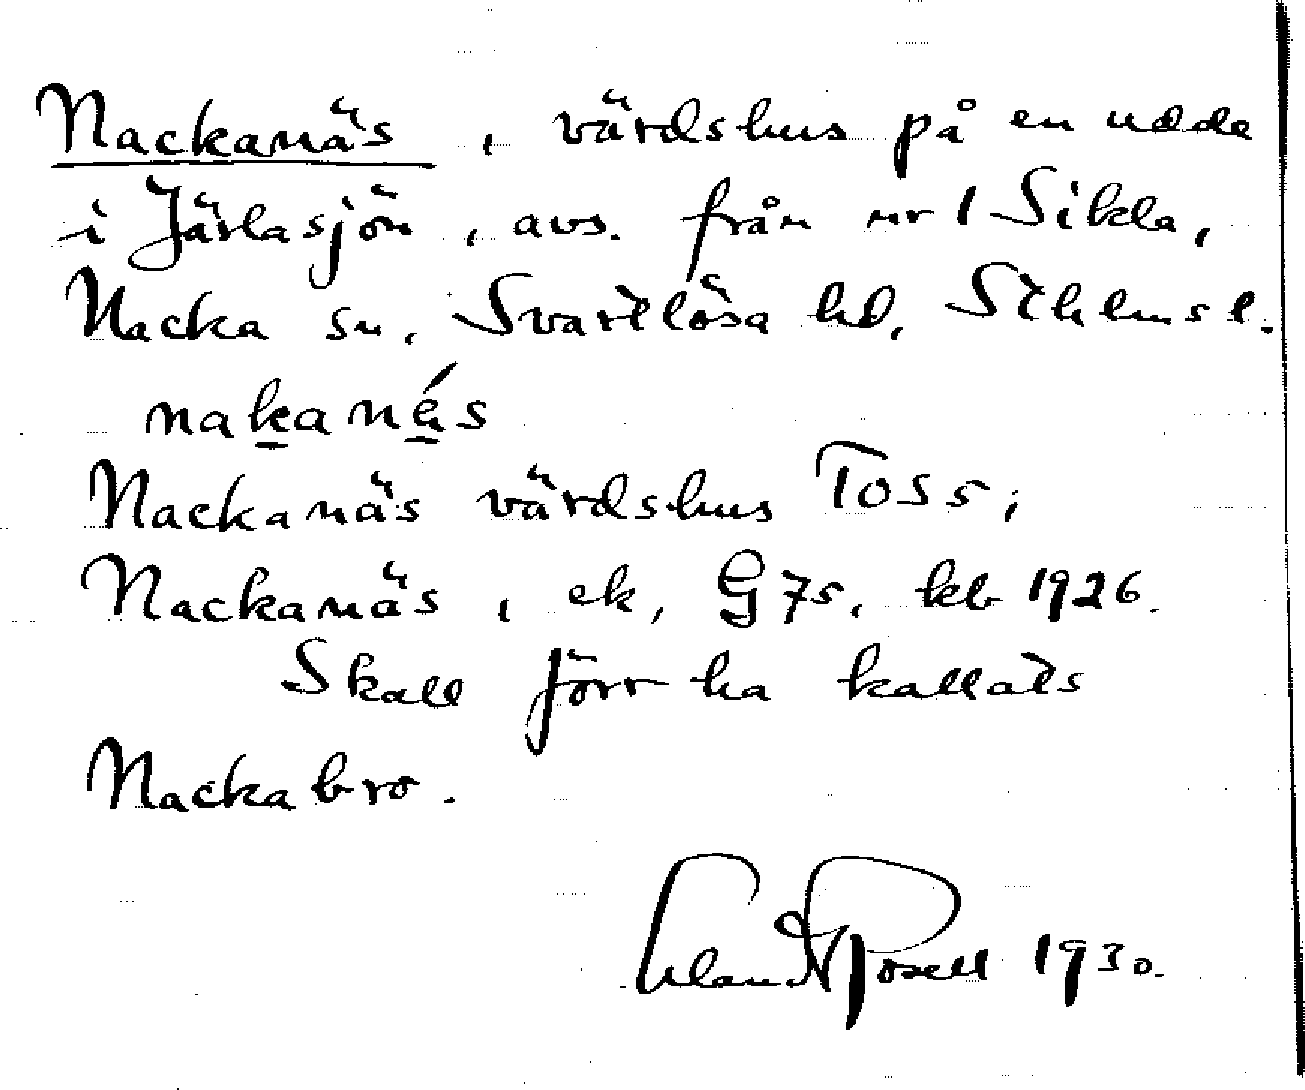 Nackanäs, värdshus på en udde
i Järlasjön, avs. från nr 1 Sikla,
Nacka sn. Svartlösa hd, Sthlms l.
nakanäs
Nackanäs värdshus Toss;
Nackanäs, ek, G 75. kb 1926.
Skall förr ha kallats
Nackabro.
Erland Rosell 1930.